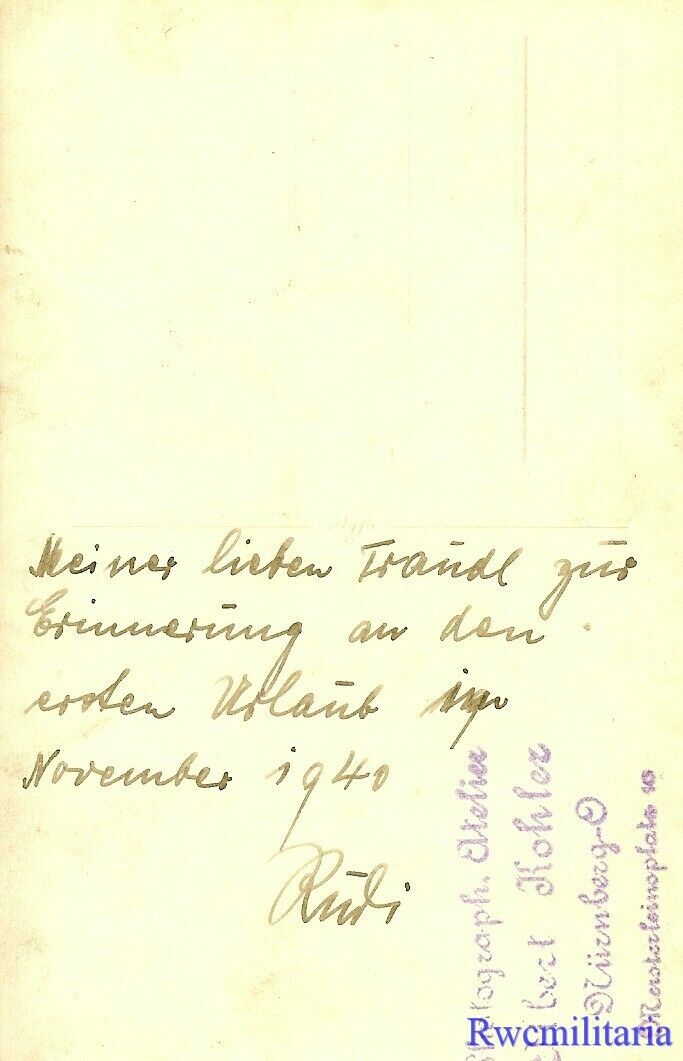 Meiner lieben Traudl zur
Erinnerung an den
ersten Urlaub im
November 1940
Rudi
Photograph. Atelier
Kohler
Nürnberg-O
Rwcmilitaria